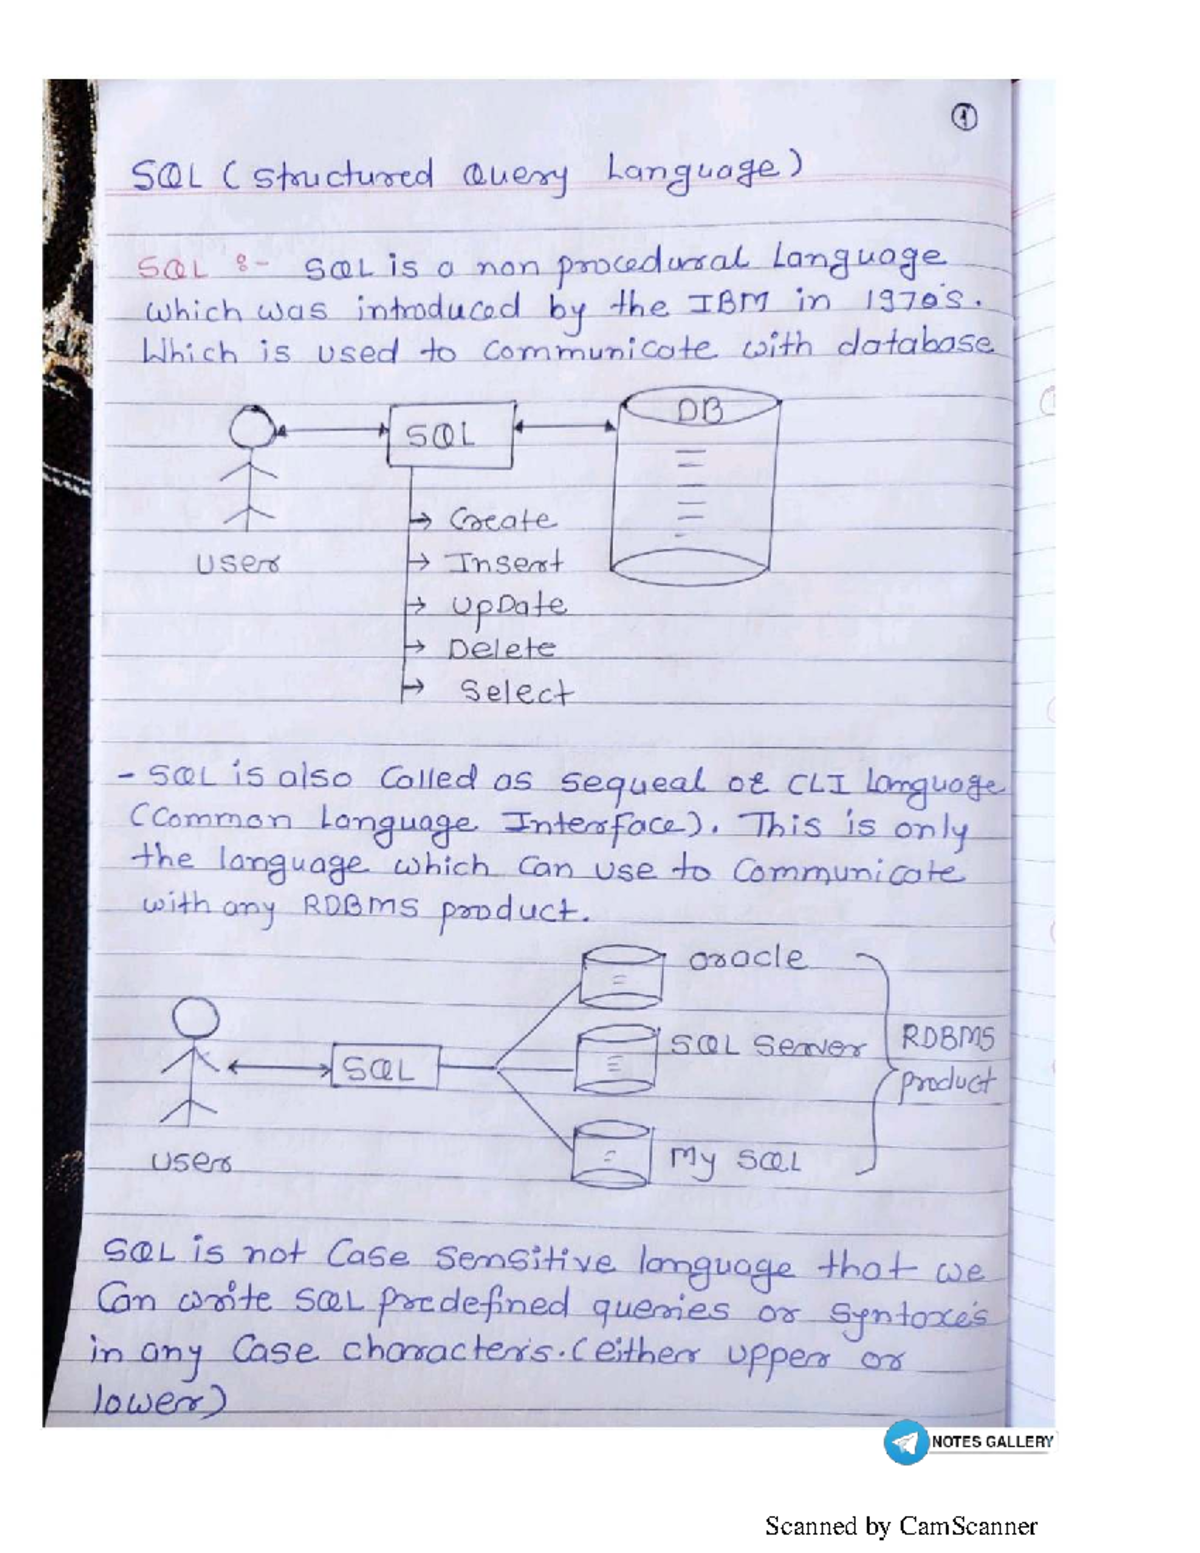 1
SQL (Structured Query Language)
SQL :- SQL is a non procedural Language
which was introduced by the IBM in 1970's.
Which is used to communicate with database
DB
SQL
Create
user
Insert
UpDate
Delete
Select
- SQL is also Called as sequeal or CLI Language
(Common Language Interface). This is only
the language which can use to Communicate
with any RDBMS product.
oracle
SQL Server
RDBMS
SQL
product
user
My SQL
SQL is not Case Sensitive language that we
Can write SQL predefined queries or syntaxe's
in any Case characteris. (either upper or
lower)
NOTES GALLERY
Scanned by CamScanner